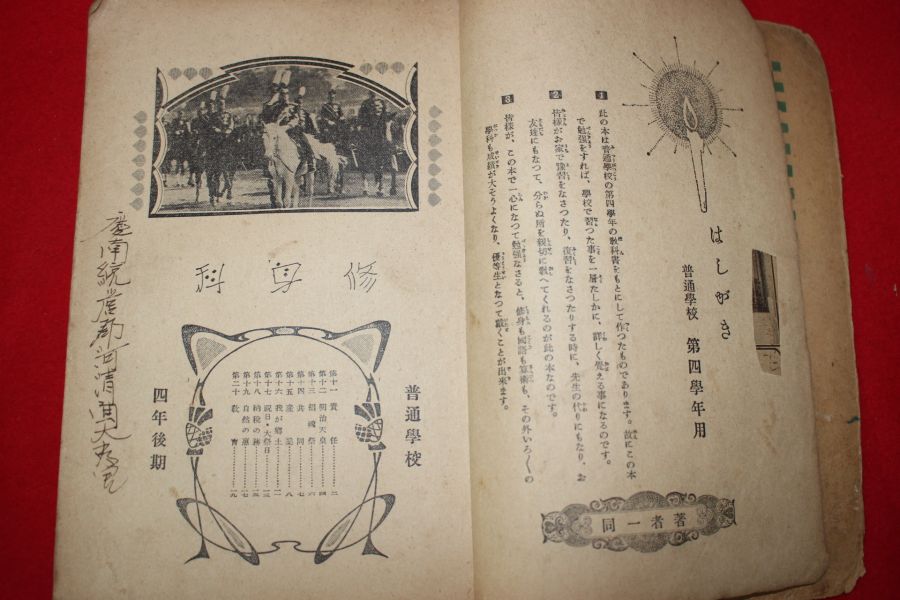 はしがき
普通學校 第四學年用
1 此の本は普通學校の第四學年の敎科書をもとにして作つたものであります。故にこの本
で勉强をすれば、學校で習つた事を一層たしかに、詳しく覺える事になるのです。
2 皆樣がお家で豫習をなさつたり、復習をなさつたりする時に、先生の代りにもなり、お
友達にもなつて、分らぬ所を親切に敎へてくれるのが此の本なのです。
3 皆樣が、この本で一心になつて勉强なさると、修身も國語も算術も、その外いろ〱の
學科も成績が大そうよくなり、優等生となつて戴くことが出來ます。
著者一同
修身科
普通學校
第十一 責任…………二
第十二 明治天皇…………四
第十三 招魂祭…………六
第十四 共同…………七
第十五 產…………八
第十六 我が鄕土…………一一
第十七 祝日・大祭日…………一三
第十八 納税の…………一五
第十九 自然の惠…………一七
第二十 敎育…………一九
四年後期
慶南統營郡河清面大